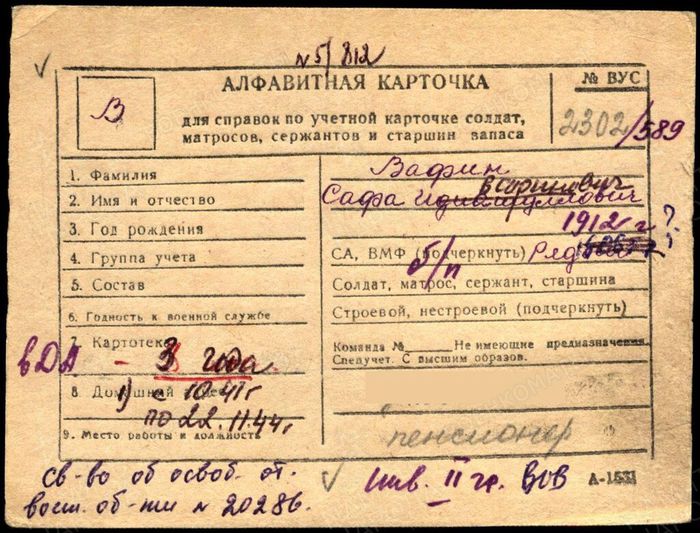 N 5/812
В
АЛФАВИТНАЯ КАРТОЧКА
для справок по учетной карточке солдат,
матросов, сержантов и старшин запаса
№ ВУС
2302/589
1. Фамилия
Вафин
2. Имя и отчество
Сафа
3. Год рождения
1912 г ?
4. Группа учета
СА, ВМФ (подчеркнуть) Рядовой
б/п
5. Состав
Солдат, матрос, сержант, старшина
6. Годность к военной службе
Строевой, нестроевой (подчеркнуть)
7. Картотека
в ДА - 3 года
Команда № Не имеющие предназначения
Спецучет. С высшим образов.
8. Домашний адрес
1) с 10.41 г
по 22.11.44 г.
9. Место работы и должность
пенсионер
св-во об освоб. от.
воин. об-ти N 20286.
инв. II гр. ВОВ
А-1531